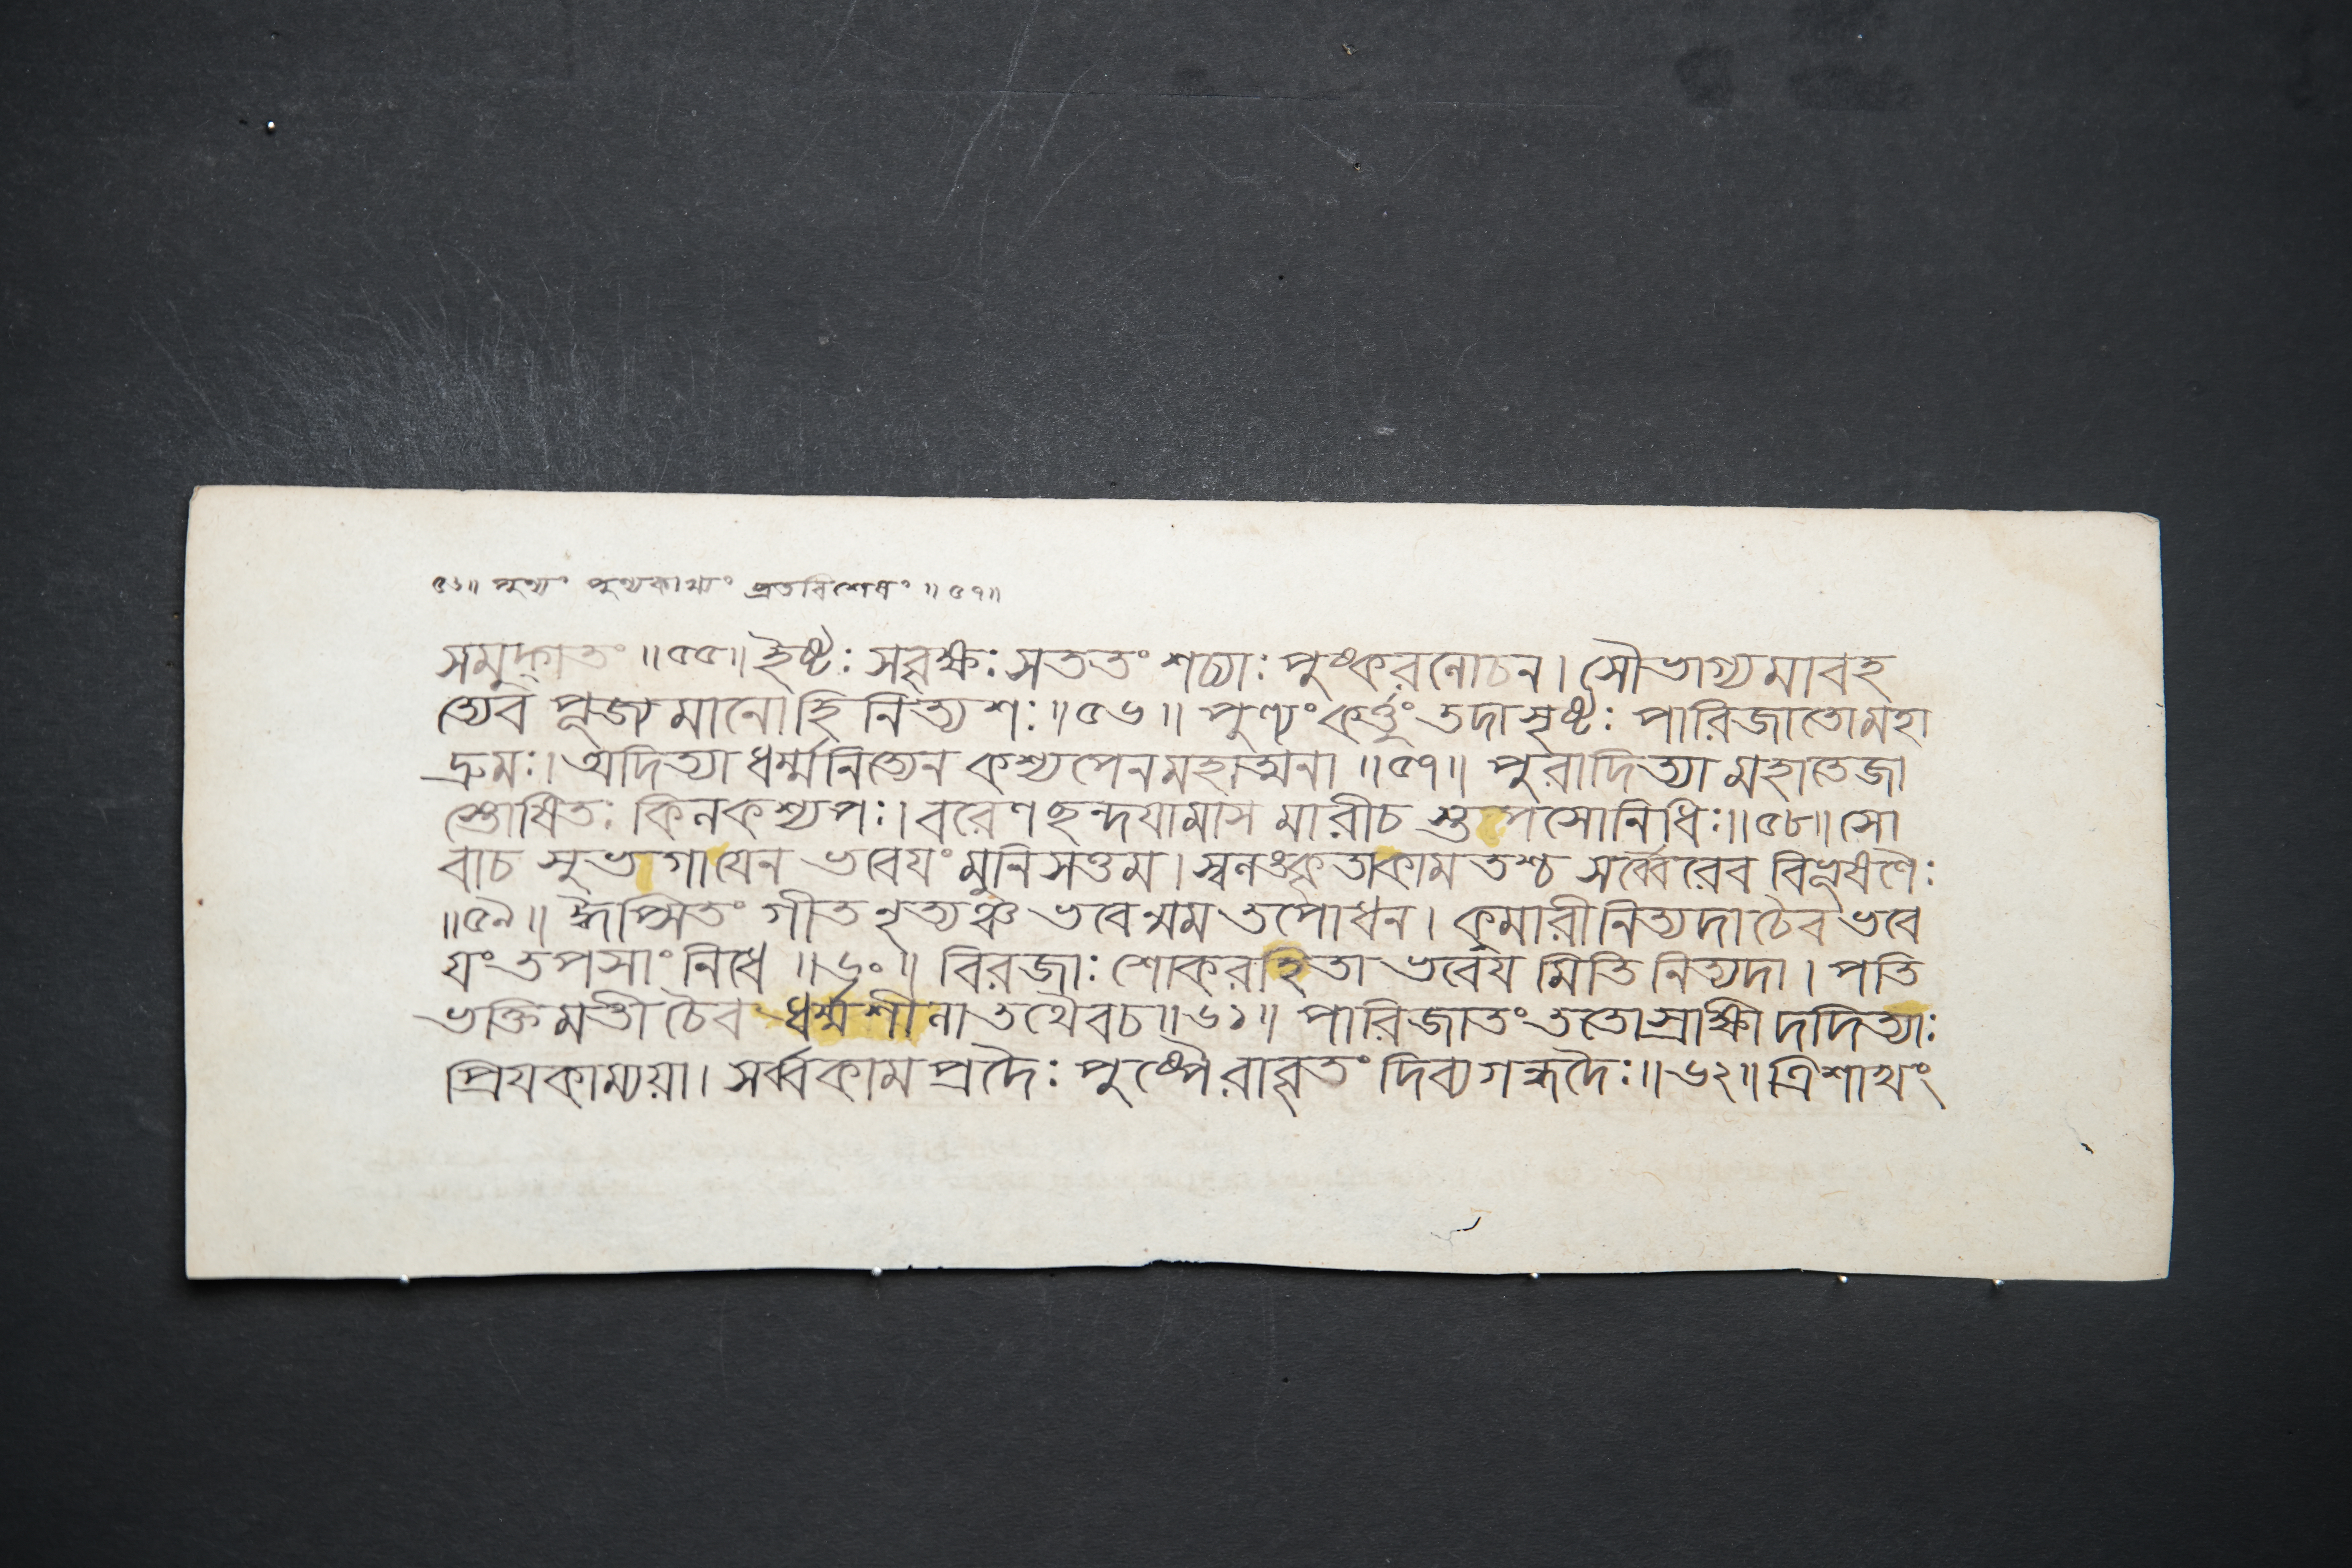 ৫৬॥ পুণ্যং পুণ্যকাখ্যং ব্রতবিশেষং ॥৫৭॥
সমুদ্গাতং ॥৫৫॥ ইষ্টঃ সবৃক্ষঃ সততং শচ্যাঃ পুষ্করলোচন। সৌভাগ্যমাবহ
ত্যেব পূজ্যমানোহি নিত্যশঃ॥৫৬॥ পুণ্যং কর্ত্তুং তদাসৃষ্টঃ পারিজাতোমহা
দ্রুমঃ। অদিত্যা ধর্ম্মনিত্যেন কশ্যপেনমহাত্মনা ॥৫৭॥ পুরাদিত্যা মহাতেজা
স্তোষিতঃ কিলকশ্যপঃ। বরেণ ছন্দযামাস মারীচ স্তপসোনিধিঃ॥৫৮॥ সো
বাচ সুভগাযেন ভবেযং মুনিসত্তম। স্বলঙ্কৃতাকামতশ্চ সর্ব্বৈরেব বিভূষণৈঃ
॥৫৯॥ ঈপ্সিতং গীতনৃত্যঞ্চ ভবেন্মম তপোধন। কুমারী নিত্যদা চৈব ভবে
যং তপসাং নিধে ॥৬০॥ বিরজাঃ শোকরহিতা ভবেয মিতি নিত্যদা। পতি
ভক্তিমতী চৈব ধর্ম্মশীলা তথৈবচ॥৬১॥ পারিজাতং ততোস্রাক্ষী দদিত্যাঃ
প্রিযকাম্যয়া। সর্ব্বকামপ্রদৈঃ পুষ্পৈরাবৃতং দিব্যগন্ধদৈঃ॥৬২॥ ত্রিশাখং